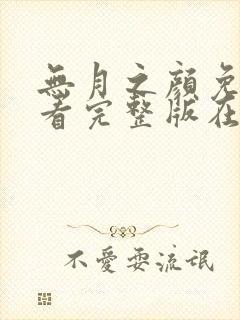 無月之顔免
看完整版在
不愛耍流氓